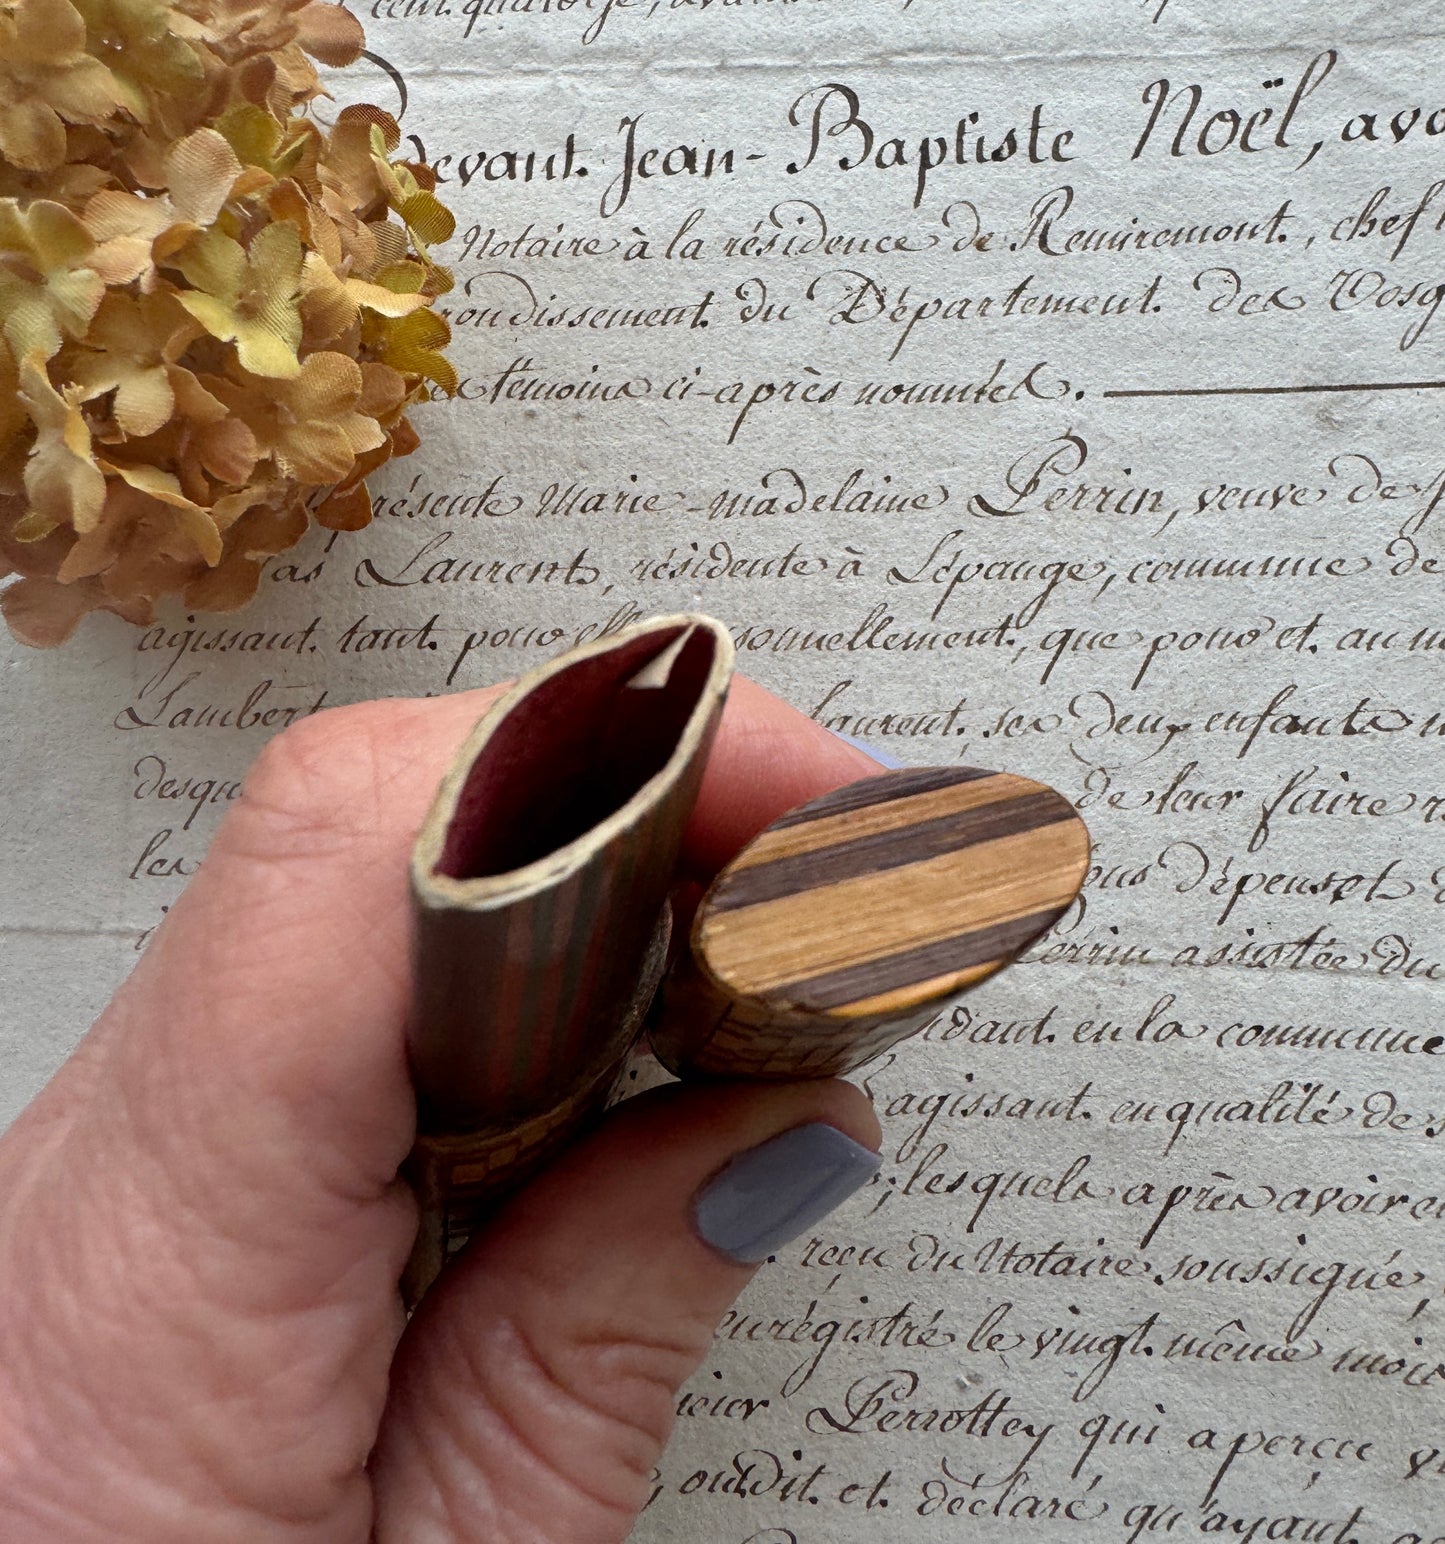 cent quatorze, avant
devant Jean-Baptiste Noël, avo
Notaire à la résidence de Remiremont, chef l
rondissement du Département des Vosg
témoins ci-après nommés.
résente Marie-madelaine Perrin, veuve de J
as Laurent, résidente à Lépange, commune de
agissant tant pour elle sonnellement, que pour et au n
Lambert laurent, ses deux enfants m
desqu de leur faire r
les ous dépens et
Perrin assistée du
idant en la commune
agissant en qualité de s
; lesquels après avoir e
reçu du Notaire soussigné,
enrégistré le vingt même mois
ieur Perrottey qui aperçu v
, ou dit et déclaré qu'ayant